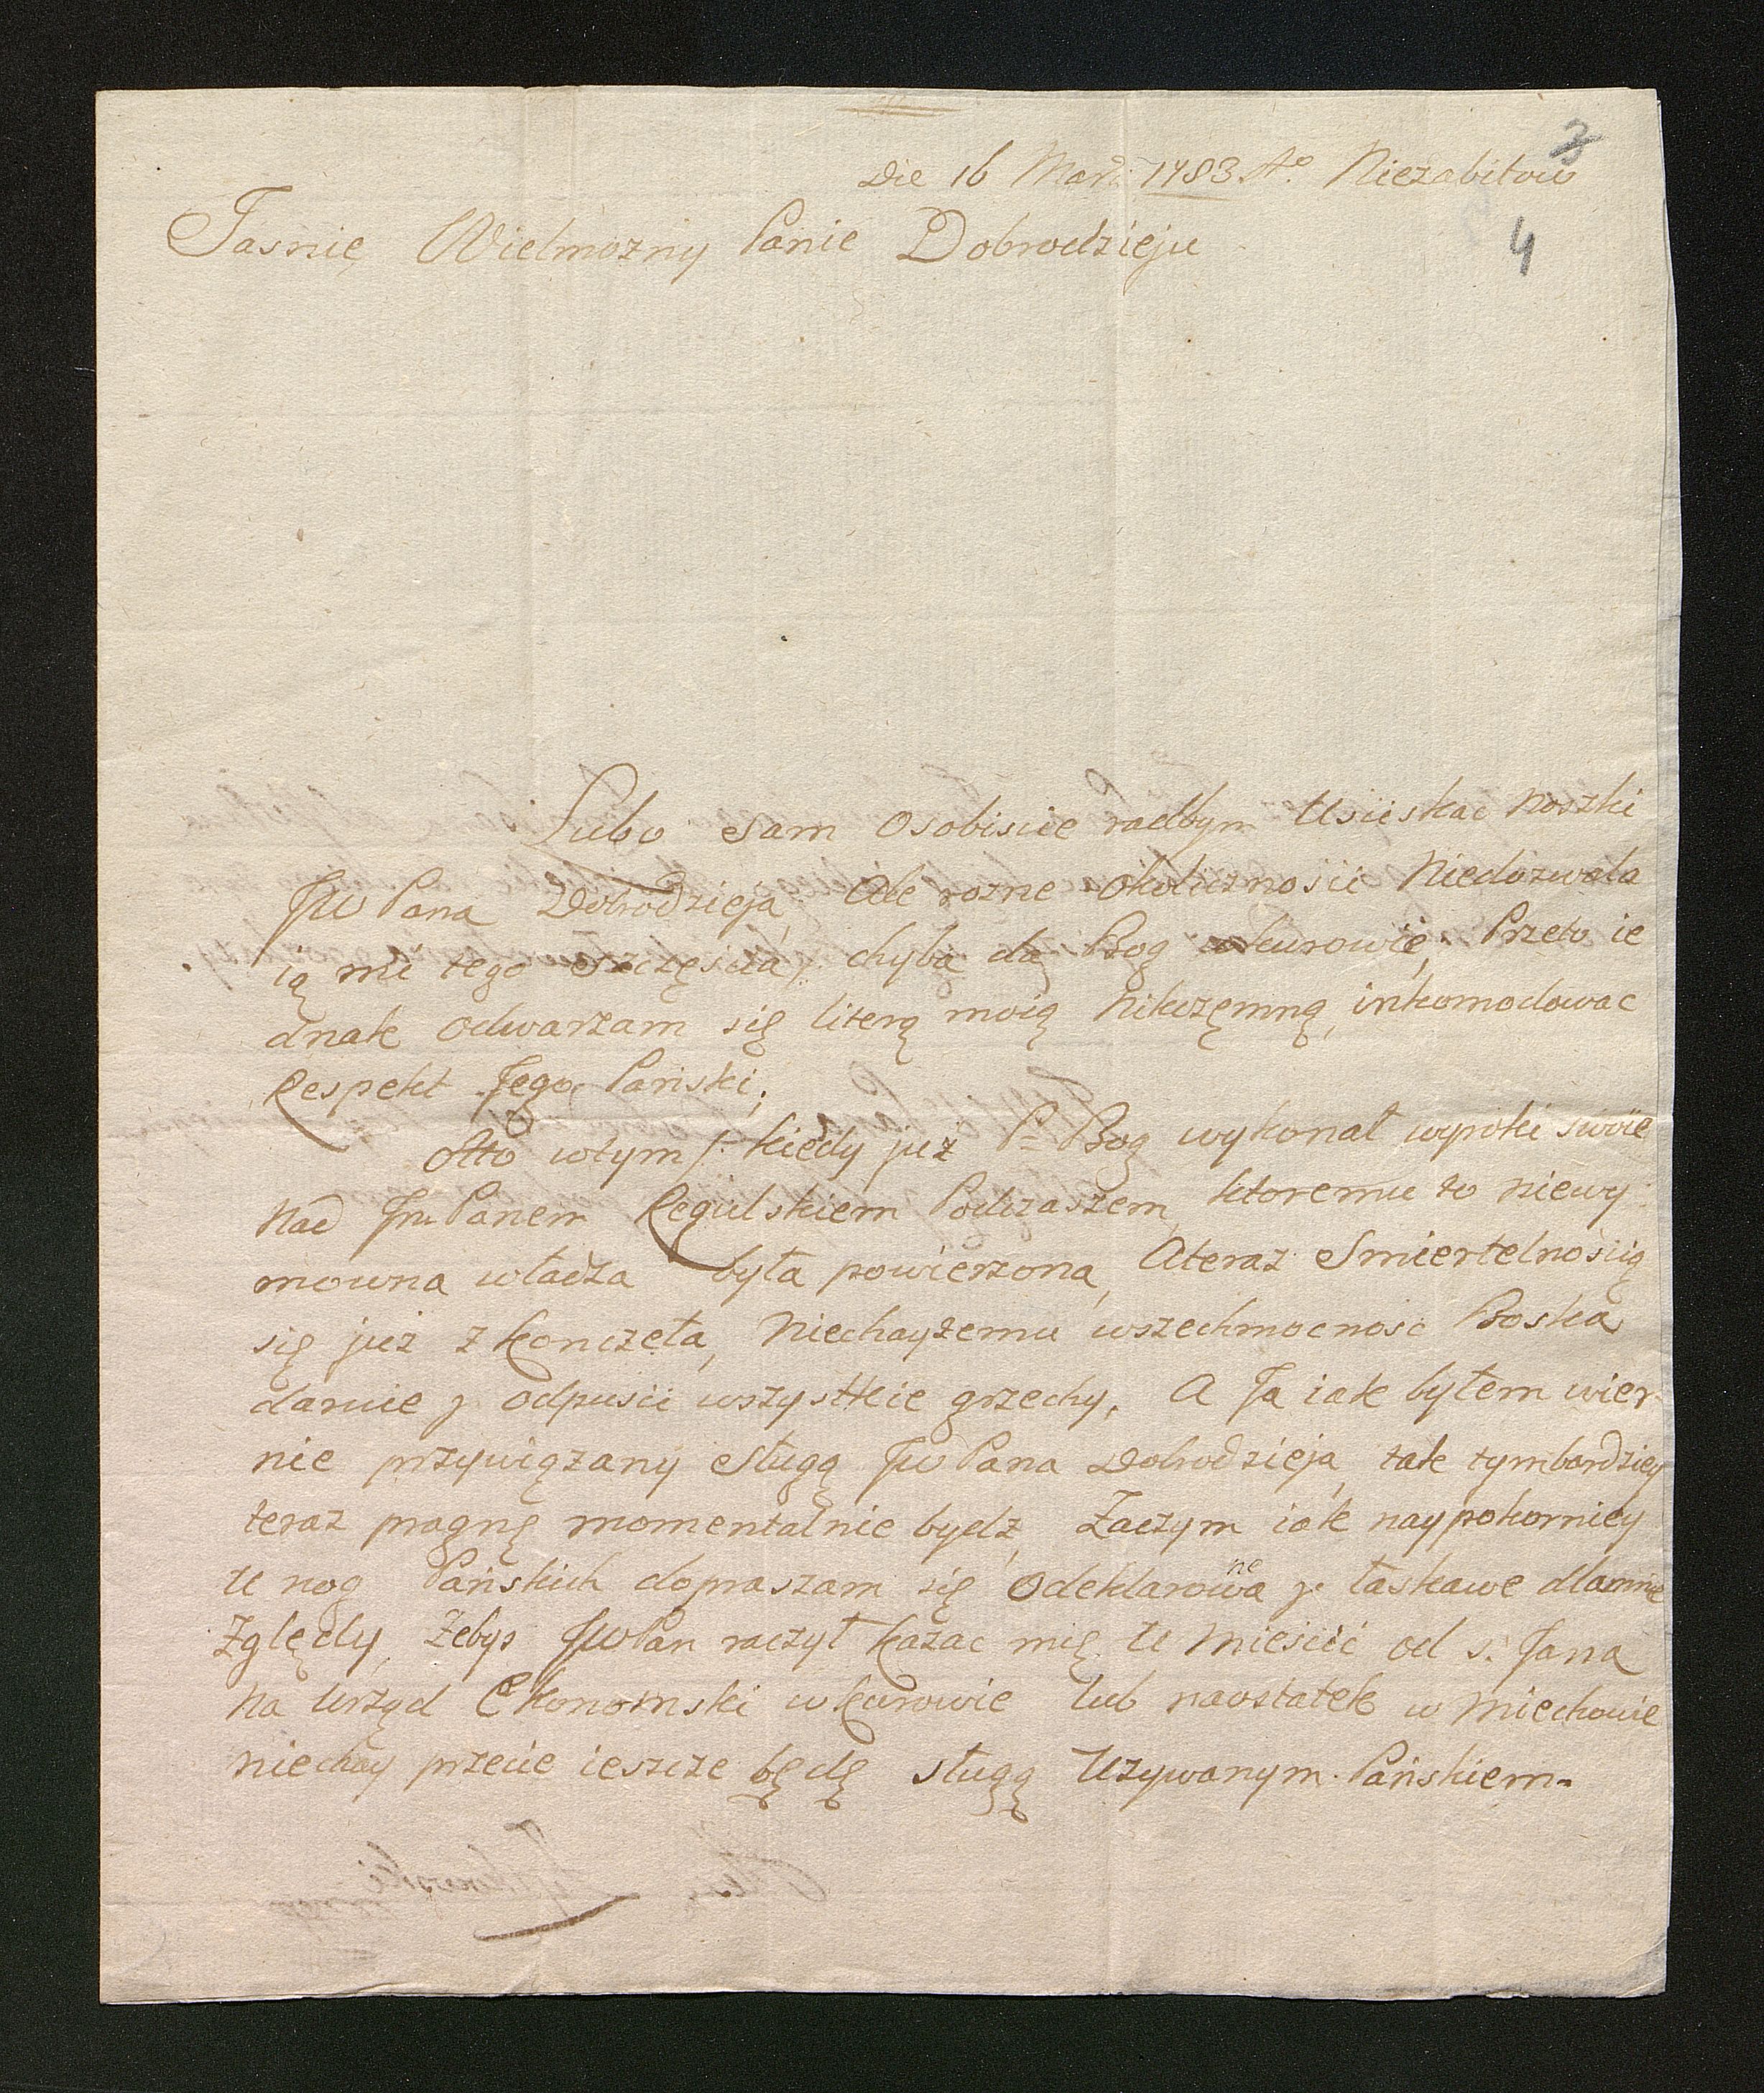 3
Die 16 Mar: 1783 Ao. Niezabitow
Jasnie Wielmozny Panie Dobrodzieju
4
Lubo sam Osobiscie radbym Usciskac noszki
JW Pana Dobrodzieja, Ale rozne okolicznosci Niedozwala
ią mi tego szczęscia, chyba da Bog wkurowie, Przeto ie
dnak odwarzam się literą moią nikczęmną, inkomodowac
Respekt Jego Pański;
Otto wtym kiedy już P. Bog wykonał wyroki swoie
Nad Jm Panem Regulskiem Podczaszem, ktoremu to niewy
mowna władza była powierzona, Ateraz Smiertelnoscią
się już zkonczeła, Niechayżemu wszechmocnosc Boska
daruie y odpusci wszystkie grzechy. A Ja iak byłem wier-
nie przywiązany sługą JW Pana Dobrodzieja, tak tymbardziey
teraz pragnę momentalnie bydz, Zaczym iak naypokorniey
U nog Pańskich dopraszam się Odeklarowane y łaskawe dlamnie
Zględy, Żebys JWPan raczył kazac mię U mieścić od s. Jana
Na Urząd Ekonomski wkurowie lub naostatek w Miechowie
niechay przecie ieszcze będę sługą Uzywanym Pańskiem-